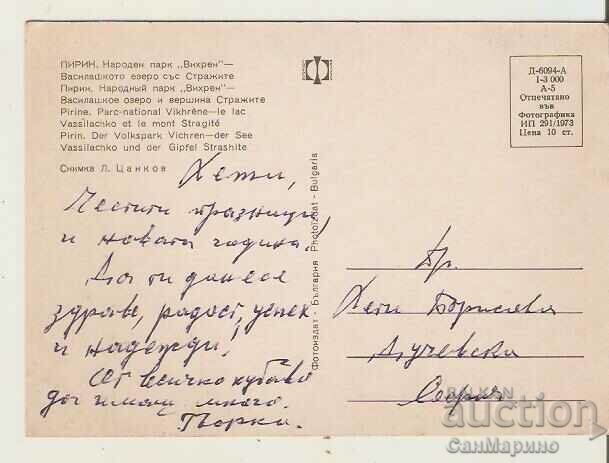 ПИРИН. Народен парк „Вихрен"—
Василашкото езеро със Стражите
Пирин. Народный парк „Вихрен"—
Василашкое озеро и вершина Стражите
Pirine. Parc-national Vikhrène—le lac
Vassilachko et le mont Stragité
Pirin. Der Volkspark Vichren—der See
Vassilachko und der Gipfel Strashite
Снимка Л. Цанков
Д-6094-А
I-3 000
А-5
Отпечатано
във
Фотографика
ИП 291/1973
Цена 10 ст.
Фотоиздат - България Photoizdat - Bulgaria
Хети,
Честити празници
и новата година!
Да ти донесе
здраве, радост, успех
и надежди!
От всичко хубаво
да имаш много.
Гр.
Хети Борисова
Дучевска
София
BALKAN
auction
СанМарино